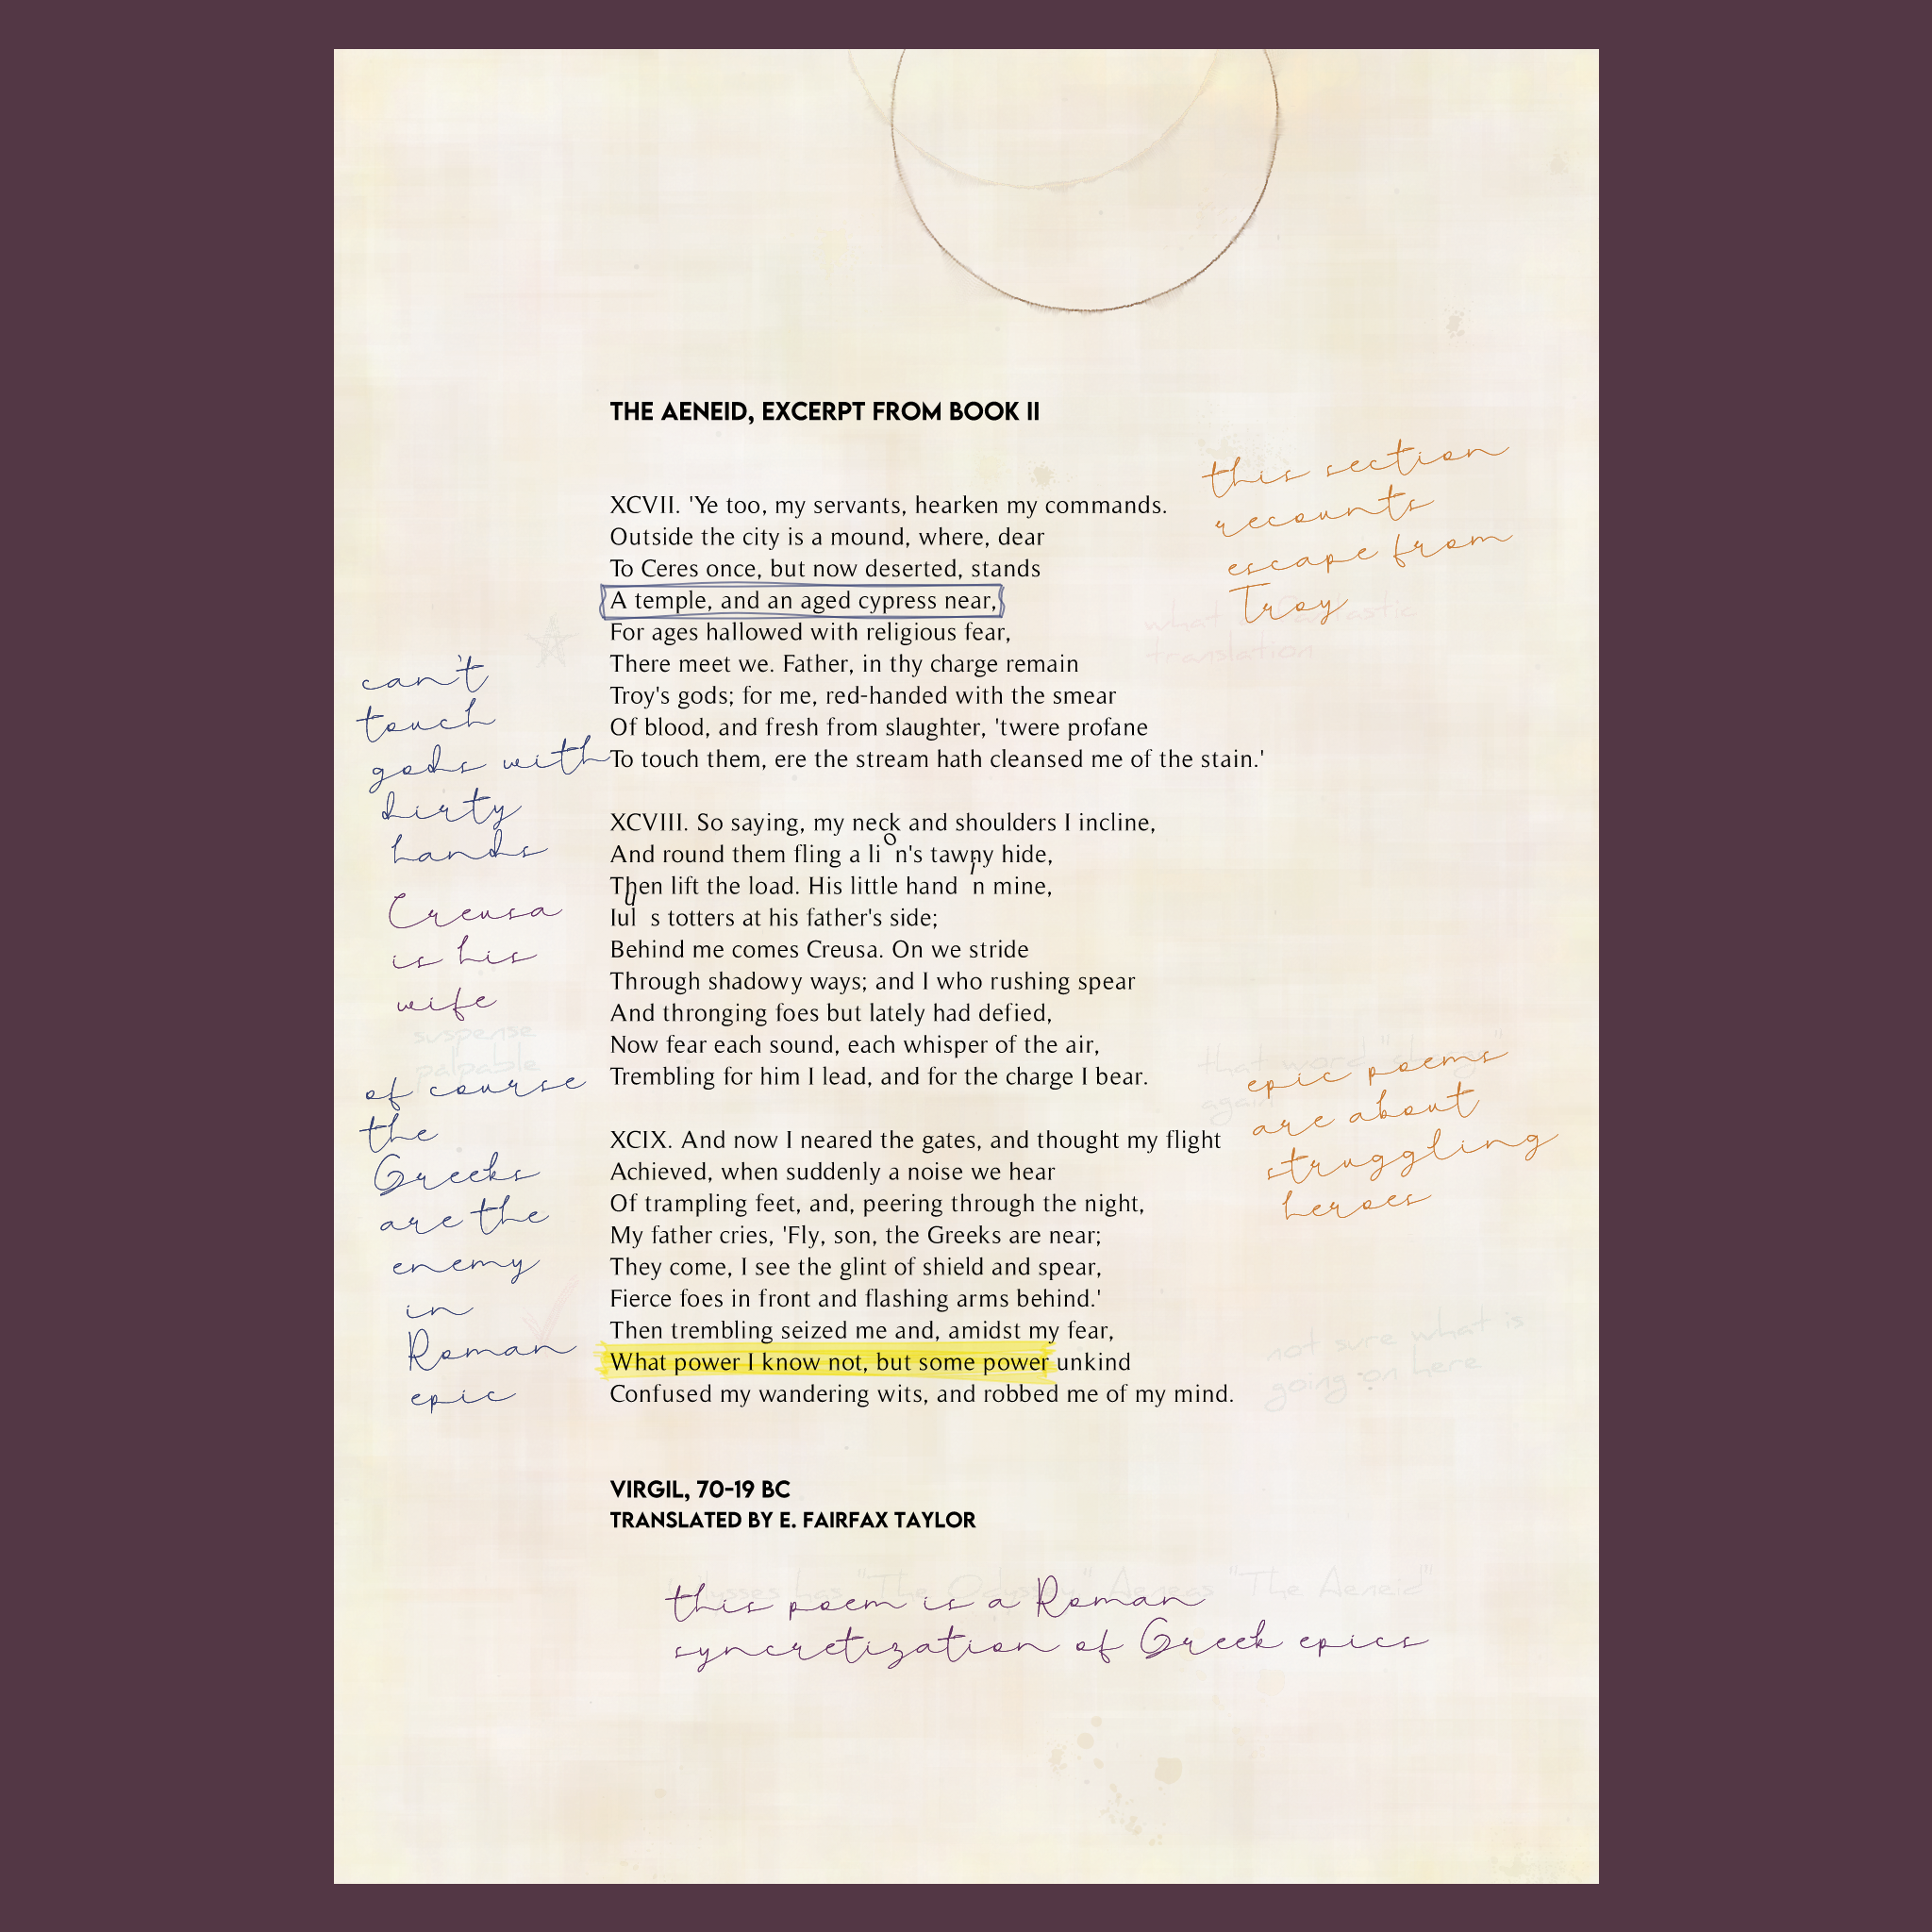 THE AENEID, EXCERPT FROM BOOK II
this section
recounts
escape from
Troy
what a fantastic
translation
XCVII. 'Ye too, my servants, hearken my commands.
Outside the city is a mound, where, dear
To Ceres once, but now deserted, stands
A temple, and an aged cypress near,
For ages hallowed with religious fear,
There meet we. Father, in thy charge remain
Troy's gods; for me, red-handed with the smear
Of blood, and fresh from slaughter, 'twere profane
To touch them, ere the stream hath cleansed me of the stain.'
can't
touch
gods with
dirty
hands
XCVIII. So saying, my neck and shoulders I incline,
And round them fling a lion's tawny hide,
Then lift the load. His little hand in mine,
Iulus totters at his father's side;
Behind me comes Creusa. On we stride
Through shadowy ways; and I who rushing spear
And thronging foes but lately had defied,
Now fear each sound, each whisper of the air,
Trembling for him I lead, and for the charge I bear.
Creusa
is his
wife
suspense
palpable
that word
again
epic poems
are about
struggling
heroes
XCIX. And now I neared the gates, and thought my flight
Achieved, when suddenly a noise we hear
Of trampling feet, and, peering through the night,
My father cries, 'Fly, son, the Greeks are near;
They come, I see the glint of shield and spear,
Fierce foes in front and flashing arms behind.'
Then trembling seized me and, amidst my fear,
What power I know not, but some power unkind
Confused my wandering wits, and robbed me of my mind.
of course
the
Greeks
are the
enemy
in
Roman
epic
not sure what is
going on here
VIRGIL, 70-19 BC
TRANSLATED BY E. FAIRFAX TAYLOR
Ulysses has "The Odyssey" Aeneas "The Aeneid"
this poem is a Roman
syncretization of Greek epics